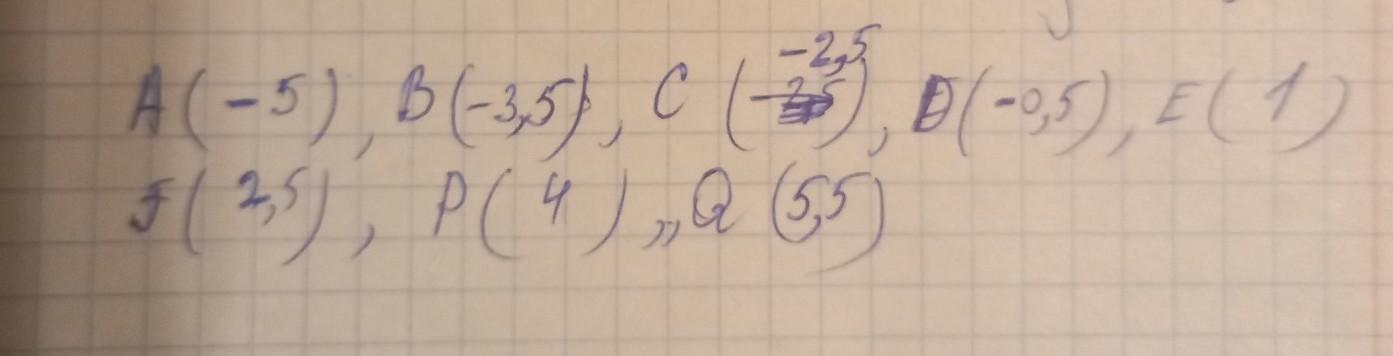 A(-5), B(-3,5), C(-2,5), D(-0,5), E(1)
F(2,5), P(4),, Q(5,5)